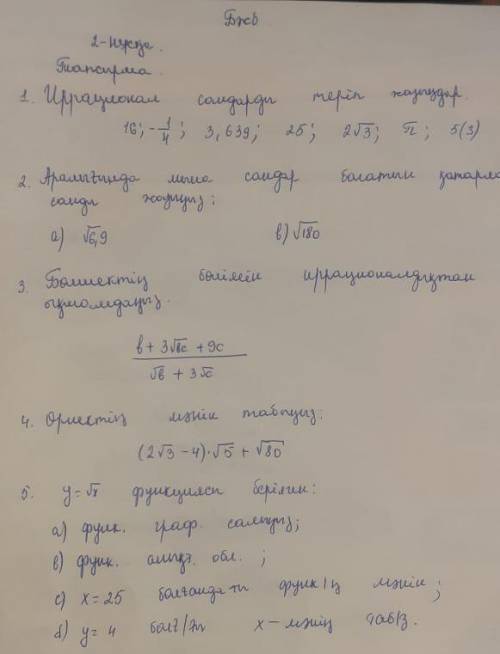 БжБ
2-нұсқа.
Тапсырма.
1. Иррационал сандарды теріп жазыңдар.
16; -1/4; 3,639; 25; 2√3; π; 5(3)
2. Аралығында мына сандар болатын қатарлас
санды жазыңыз:
а) √6,9 в) √180
3. Бөлшектің бөлімін иррационалдықтан
(в + 3√вс + 9с) / (√в + 3√с)
4. Өрнектің мәнін табыңыз:
(2√3 - 4)·√5 + √80
5. y = √x функциясы берілген:
а) функ. граф. салыңыз;
в) функ. анықт. обл. ;
с) x = 25 болғандағы функ/ң мәнін;
d) y = 4 болғ/ғы x - мәнін таб/з.